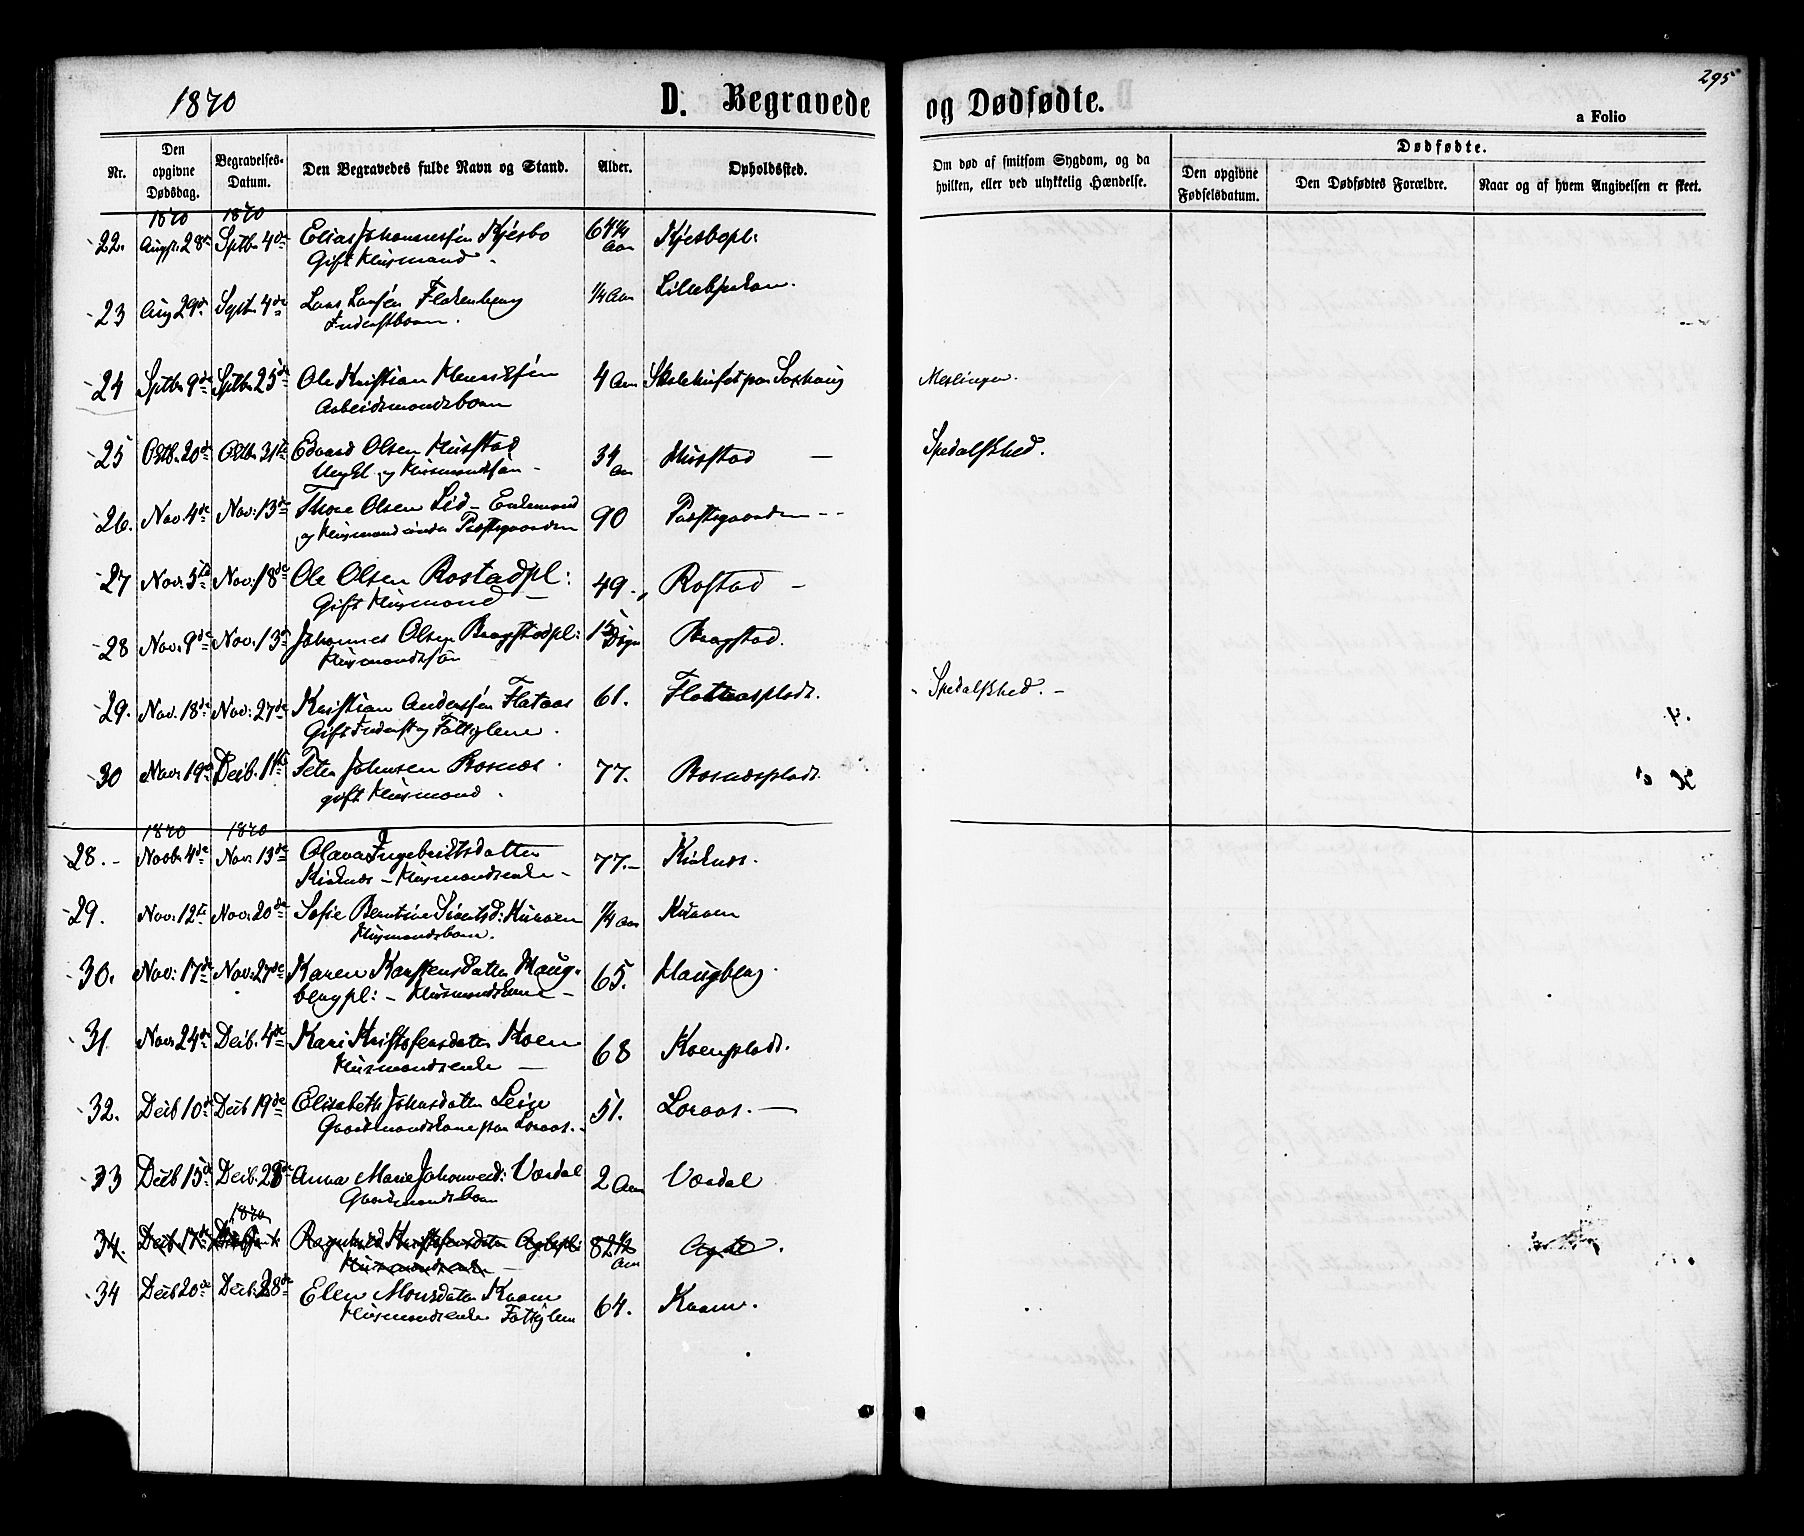 295
1870 D. Begravede og Dødfødte. a Folio
Nr. Den opgivne Dødsdag. Begravelses-Datum. Den Begravedes fulde Navn og Stand. Alder. Opholdssted. Om død af smitsom Sygdom, og da hvilken, eller ved ulykkelig Hændelse. Dødfødte.
Den opgivne Fødselsdatum. Den Dødfødtes Forældre. Naar og af hvem Angivelsen er skeet.
1870 1870
22. Augst. 28de Sptbr 4de Elias Johannessen Kjesbo 64 Aar Kjesbopl:
Gift Husmand
23 Aug 29de Sept. 4de Lars Larsen Falkenberg 1/4 Aar
Inderstbarn.
24 Sptbr 9de Sptbr 25de Ole Kristian 4 Aar Meslinger.
Arbeidsmandsbarn
25 Oktb. 20de Oktb. 31te Edvard Olsen Husstad 34 Aar Husstad Spedalskhed.
Ungkl. og Husmandssøn
26. Nov. 4de Nov: 13de Thore Olsen Lid - Enkemand 90 Præstegaarden
og Husmand under Præstegaarden
27 Nov. 5te Nov: 18de Ole Olsen Rostadpl: 49. Rostad
Gift Husmand
28 Nov. 9de Nov. 13de Johannes Olsen Bragstadpl: 15 Dage Bragstad.
Husmandssøn
29. Nov. 18de Nov: 27de Kristian Andersen Flataas 61. Flataasplads. Spedalskhed.
Gift Inderst og Fattiglem.
30 Nov: 19de Decb. 11te Peter Johnsen Rosnæs. 77. Rosnæsplads.
gift Husmand.
1870 1870
28. Novb. 4de Nov. 13de Olava Ingebrigtsdatter 77. Kirknæs.
Kirknæs - Husmandsenke
29. Nov. 12te Nov. 20de Sofie Bentine Sivertsd: 1/4 Aar
Husmandsbarn.
30. Nov: 17de Nov. 27de Karen Karstensdatter Haug- 65. Haugberg.
bergpl: - Husmandskone
31. Nov. 24de Decb. 4de Kari Kristofersdatter Hoen 68 Hoenplads.
Husmandsenke
32. Decb 10de Decb 19de Elisabeth Johnsdatter Lein 51. Loraas.
Gaardmandskone paa Loraas.
33 Decb 15de Decb. 28de Anna Marie Johannesd: Værdal 2 Aar Værdal
Gaardmandsbarn
1870
34. Decb 17de Ragnhild Kristofersdatter Aglepl: 82 1/2 Aar Agle.
Husmandsenke
34 Decb 20de Decb. 28de Elen Monsdatter Kaam 64. Kaam.
Husmandsenke Fattiglem